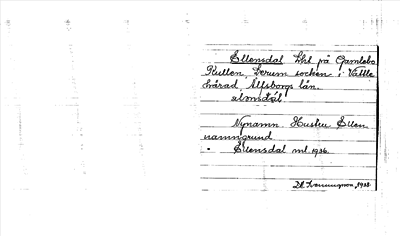 Ellensdal Lht på Gamlebo
Kullen, Lerum socken i Vättle
härad, Älfsborgs län.
elonsdal
Nynamn. Hustru Ellen
namngrund
" Ellensdal ml. 1936.
1938